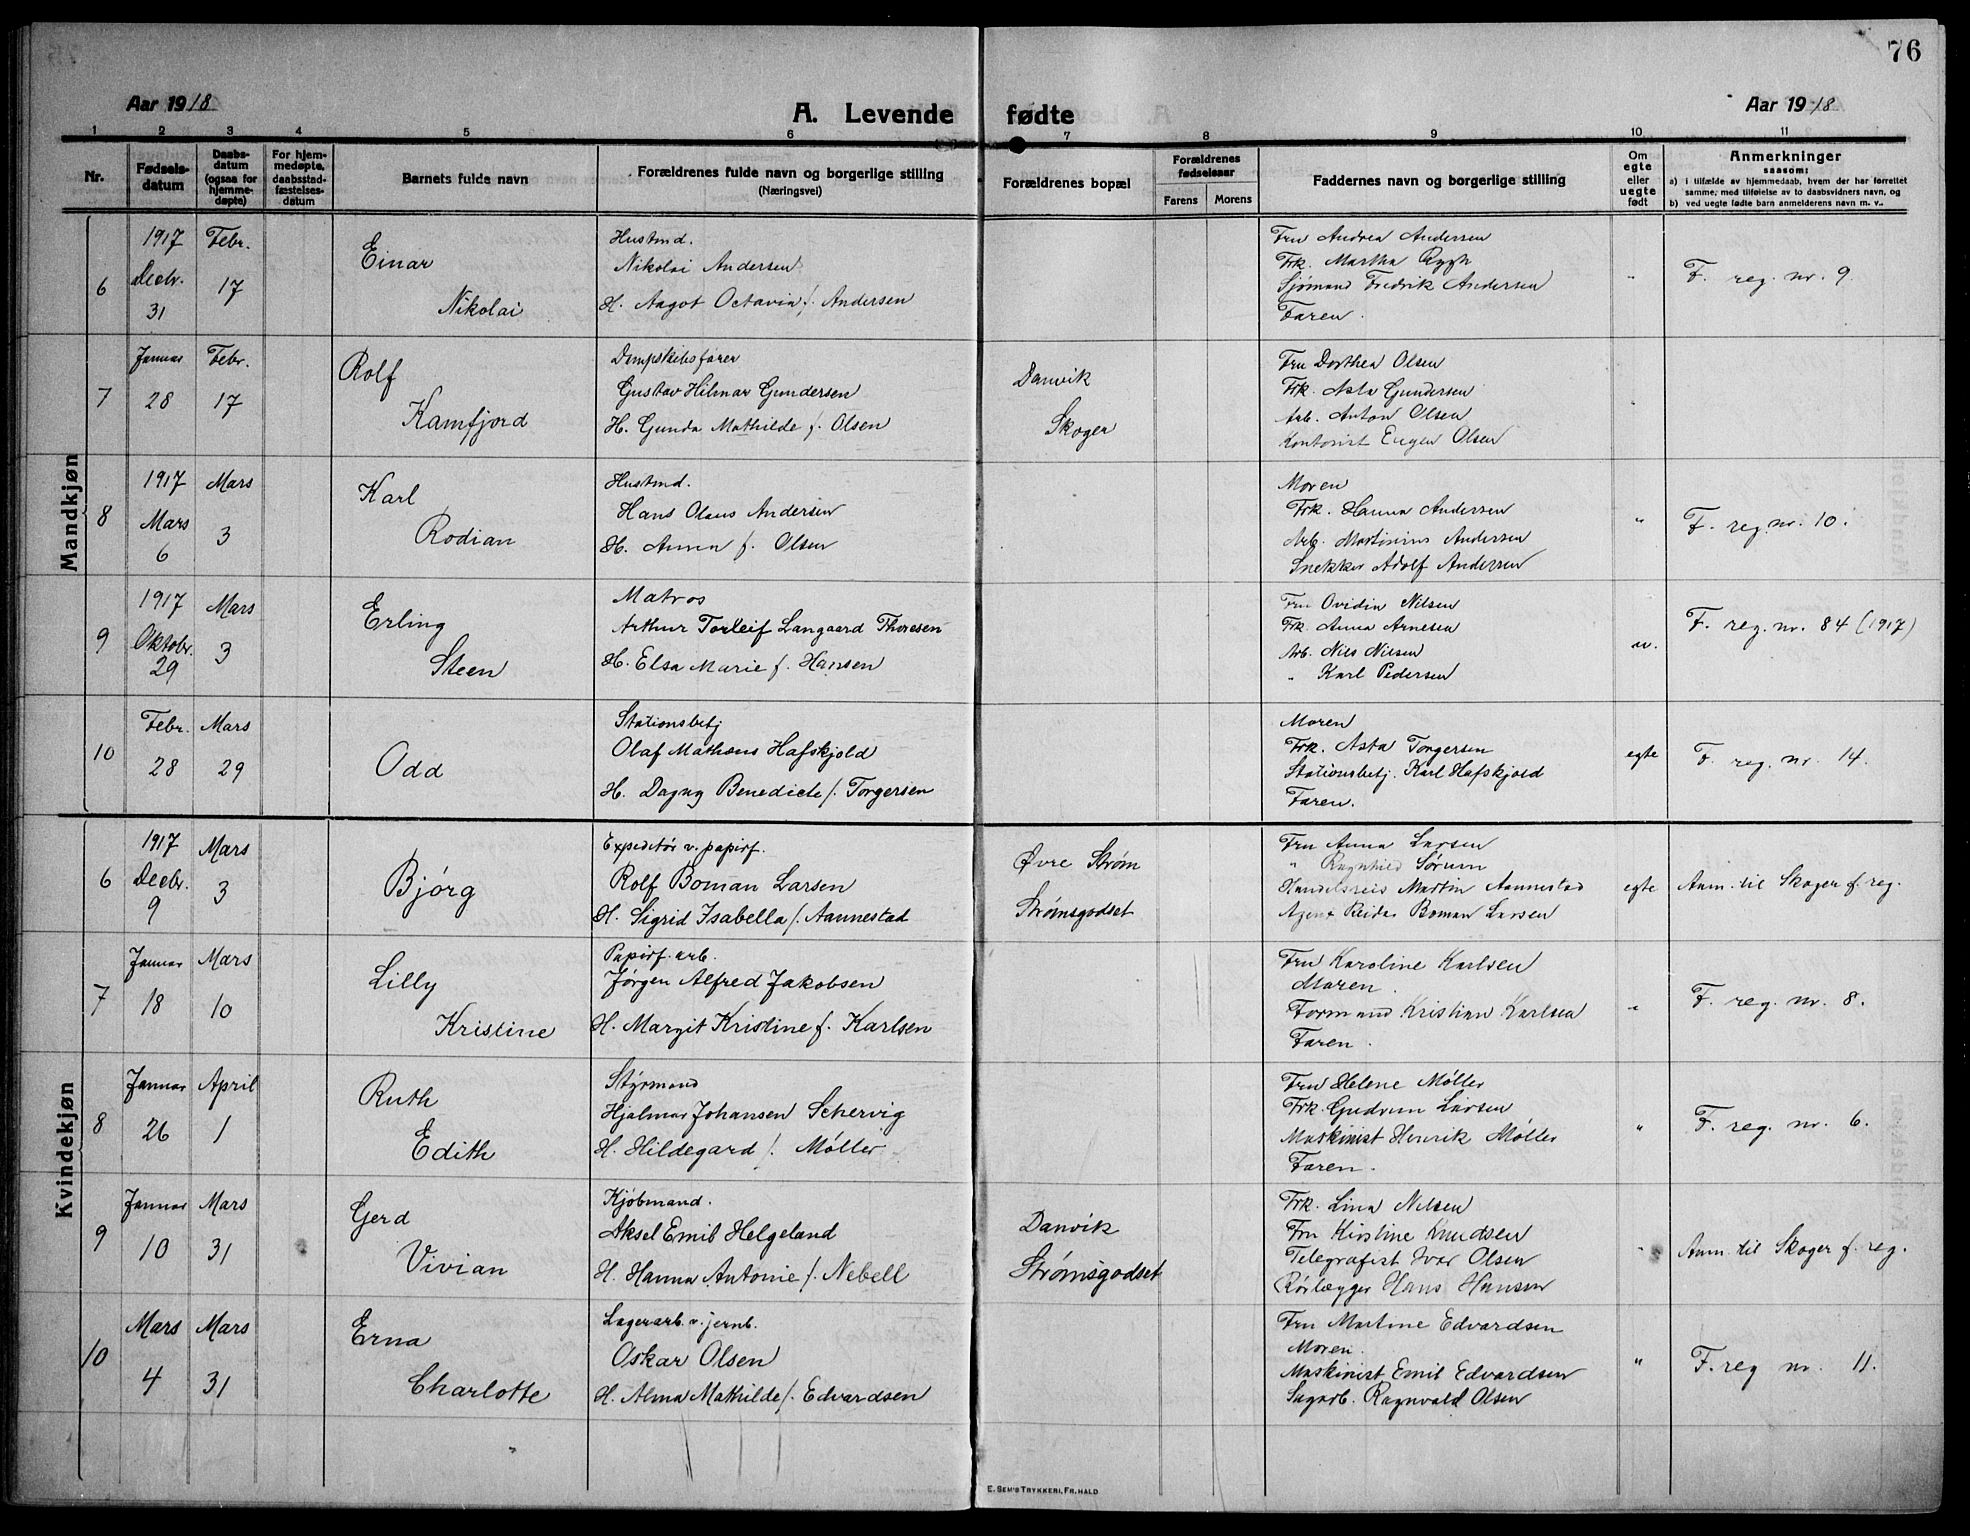 76
Aar 1918
A. Levende fødte
Aar 1918
1 2 3 4 5 6 7 8 9 10 11
Nr.
Fødsels-
datum
Daabs-
datum
(ogsaa for
hjemme-
døpte)
For hjem-
medøpte,
daabsstad-
fæstelses-
datum
Barnets fulde navn
Forældrenes fulde navn og borgerlige stilling
(Næringsvei)
Forældrenes bopæl
Forældrenes
fødselsaar
Farens Morens
Faddernes navn og borgerlige stilling
Om
egte
eller
uegte
født
Anmerkninger
saasom:
a) i tilfælde av hjemmedaab, hvem der har forrettet
samme, med tilføielse av to daabsvidners navn, og
b) ved uegte fødte barn anmelderens navn m. v..
Mandkjøn
6
1917
Decbr.
31
Febr.
17
Einar
Nikolai
Hustmd.
Nikolai Andersen
H. Aagot Octavia f. Andersen
Fru Andrea Andersen
Frk. Martha Rygh
Sjømand Fredrik Andersen
Faren.
"
F. reg. nr. 9.
7
Januar
28
Febr.
17
Rolf
Kamfjord
Dampskibsfører
Gustav Hilmar Gundersen
H. Gunda Mathilde f. Olsen
Danvik
Skoger
Fru Dorthea Olsen
Frk. Asta Gundersen
Arb. Anton Olsen
Kontorist Eugen Olsen
"
8
1917
Mars
6
Mars
3
Karl
Rodian
Hustmd.
Hans Olaus Andersen
H. Anna f. Olsen
Moren
Frk. Hanna Andersen
Arb. Martinius Andersen
Snekker Adolf Andersen
"
F. reg. nr. 10.
9
1917
Oktobr.
29
Mars
3
Erling
Steen
Matros
Arthur Torleif Langaard Thoresen
H. Elsa Marie f. Hansen
Fru Ovidia Nilsen
Frk. Anna Arnesen
Arb. Nils Nilsen
" Karl Pedersen
u.
F. reg. nr. 84 (1917)
10
Febr.
28
Mars
29
Odd
Stationsbetj
Olaf Mathæus Hafskjold
H. Dagny Benedicte f. Torgersen
Moren
Frk. Asta Torgersen
Stationsbetj. Karl Hafskjold
Faren.
egte
F. reg. nr. 14.
Kvindekjøn
6
1917
Decbr.
9
Mars
3
Bjørg
Expeditør v. papirf.
Rolf Boman Larsen
H. Sigrid Isabella f. Aannestad
Øvre Strøm
Strømsgodset
Fru Anna Larsen
" Ragnhild Sørum
Handelsreis Martin Aannestad
Agent Reidar Boman Larsen
egte
Anm. til Skoger f. reg.
7
Januar
18
Mars
10
Lilly
Kristine
Papirf. arb.
Jørgen Alfred Jakobsen
H. Margit Kristine f. Karlsen
Fru Karoline Karlsen
Moren.
Formand Kristian Karlsen
Faren.
"
F. reg. nr. 8.
8
Januar
26
April
1
Ruth
Edith
Styrmand
Hjalmar Johansen Schervig
H. Hildegard f. Møller
Fru Helene Møller
Frk. Gudrun Larsen
Maskinist Henrik Møller
Faren.
"
F. reg. nr. 6.
9
Januar
10
Mars
31
Gerd
Vivian
Kjøbmand.
Aksel Emil Helgeland
H. Hanna Antonie f. Nebell
Danvik
Strømsgodset
Frk. Lina Nilsen
Fru Kirstine Knudsen
Telegrafist Ivar Olsen
Rørlægger Hans Hansen
"
Anm. til Skoger f. reg.
10
Mars
4
Mars
31
Erna
Charlotte
Lagerarb. v. jernb.
Oskar Olsen
H. Alma Mathilde f. Edvardsen
Fru Martine Edvardsen
Moren.
Maskinist Emil Edvardsen
Sagarb. Ragnvald Olsen
"
F. reg nr. 11.
E. SEM'S TRYKKERI, FR.HALD